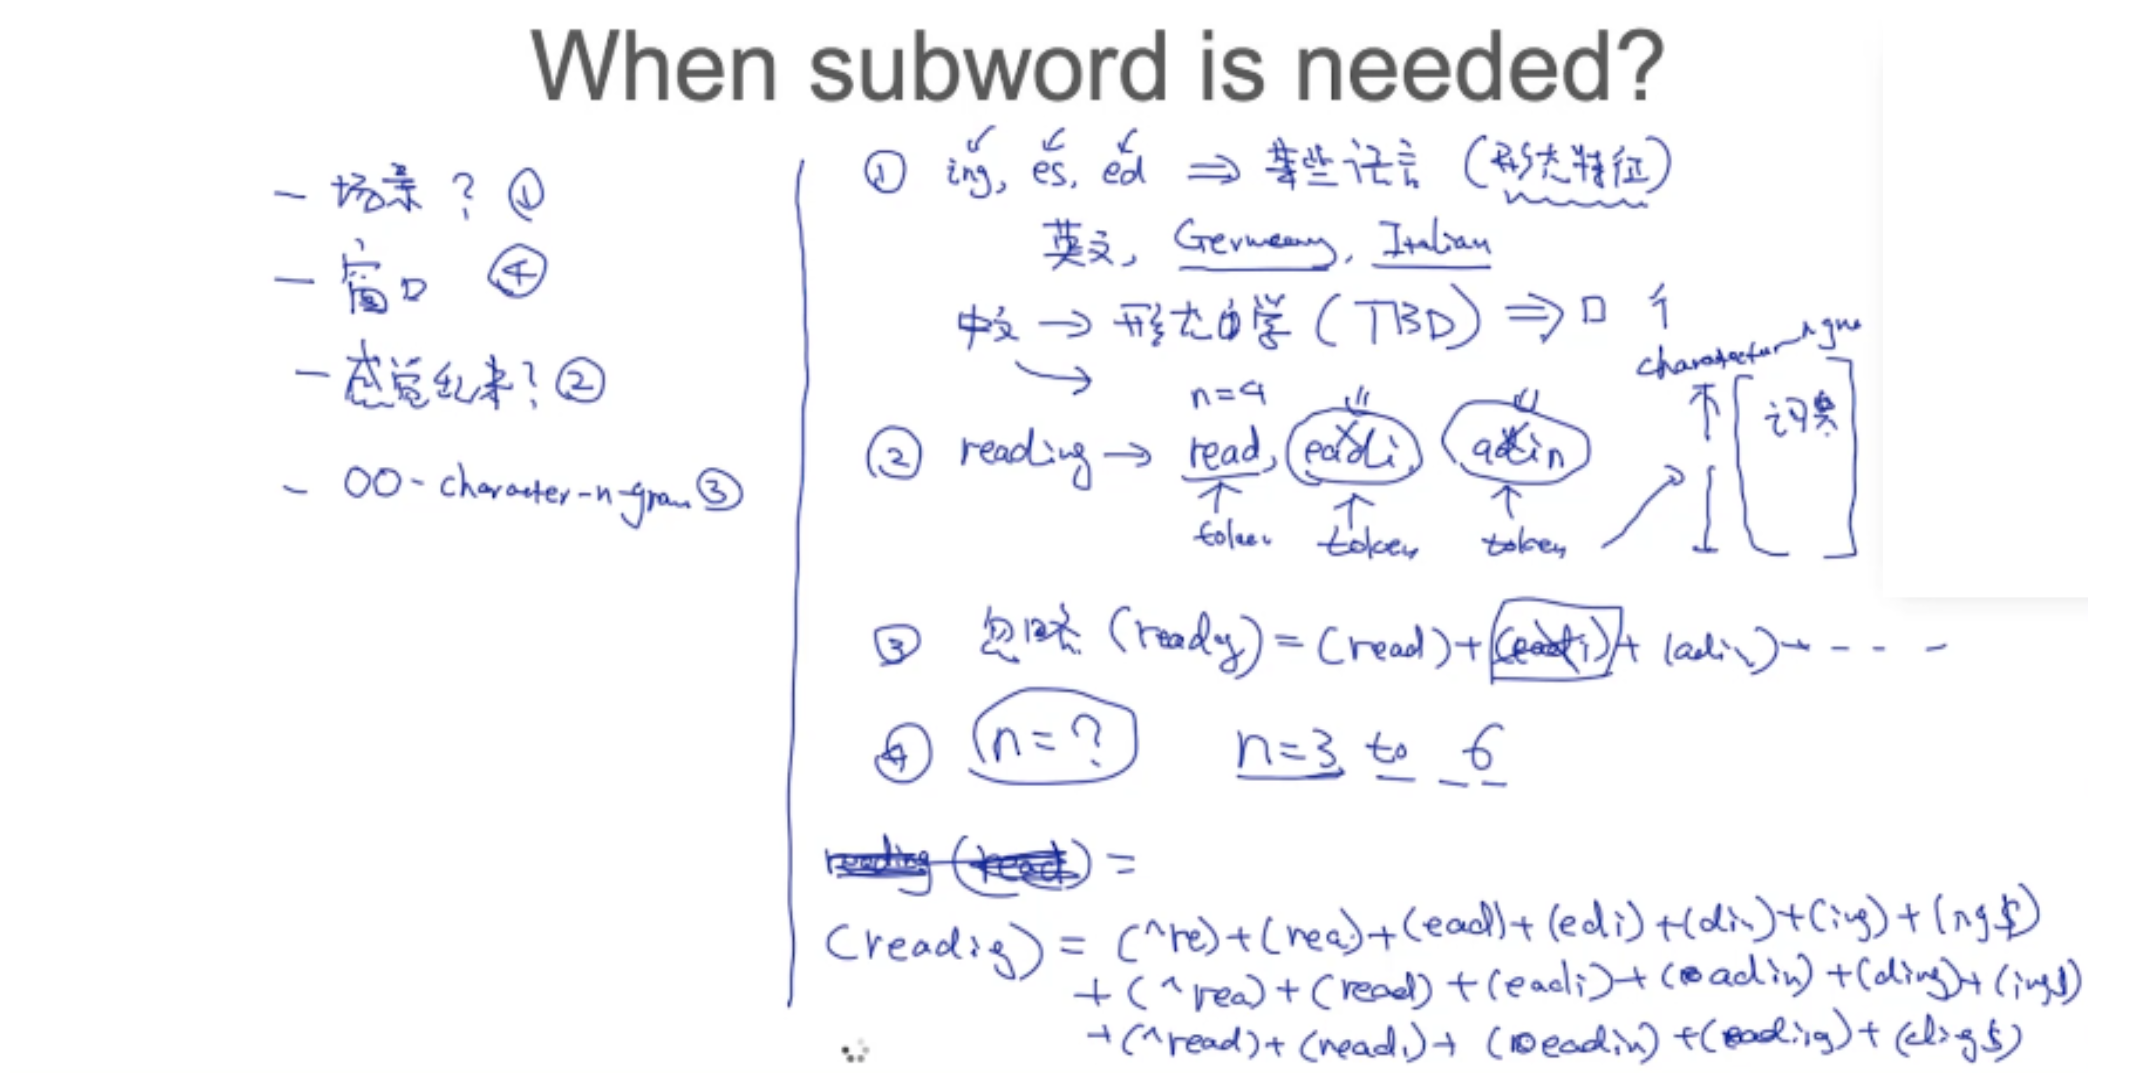 When subword is needed?
- 场景? ①
- 窗口 ④
- 感觉乱来? ②
- OO-character-n-gram ③
① ing, es, ed ⇒ 某些语言 (形态特征)
英文, Germeany, Italian
中文 → 形态学 (TBD) ⇒ 口
character n gram
词典
n=4
② reading → read, eadi adin
token token token
③ 忽略 (ready) = (read) + (eadi) + (adin) + - - -
④ n=? n=3 to 6
reading (read) =
(readig) = (^re) + (rea) + (ead) + (edi) + (din) + (ing) + (ng$)
+ (^rea) + (read) + (eadi) + (adin) + (ding) + (ing$)
+ (^read) + (readi) + (eadin) + (eadiig) + (dig$)